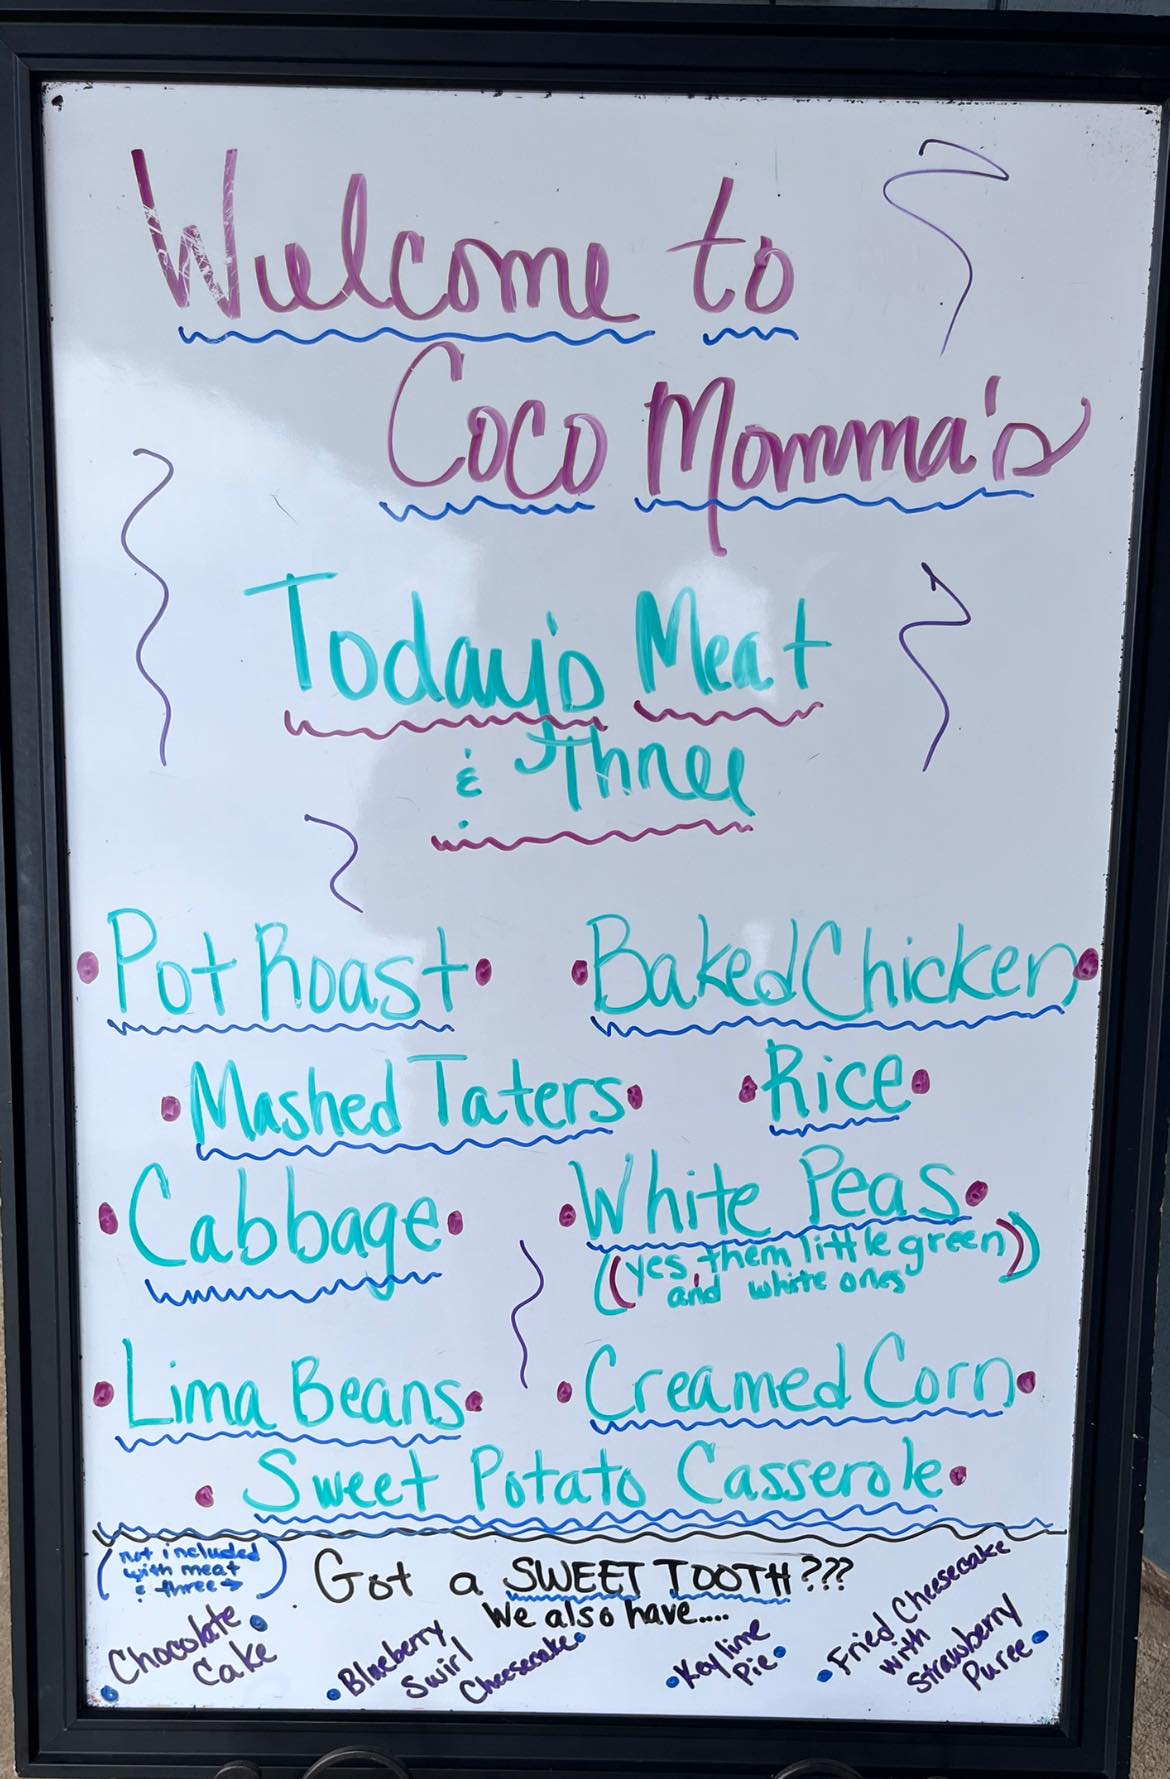 Welcome to
Coco Momma's
Today's Meat
& Three
Pot Roast
Baked Chicken
Mashed Taters
Rice
Cabbage
White Peas
(yes, them little green
and white ones)
Lima Beans
Creamed Corn
Sweet Potato Casserole
(not included
with meat
& three →)
Got a SWEET TOOTH???
We also have....
Chocolate
Cake
Blueberry
Swirl
Cheesecake
Key lime
Pie
Fried Cheesecake
with
Strawberry
Puree